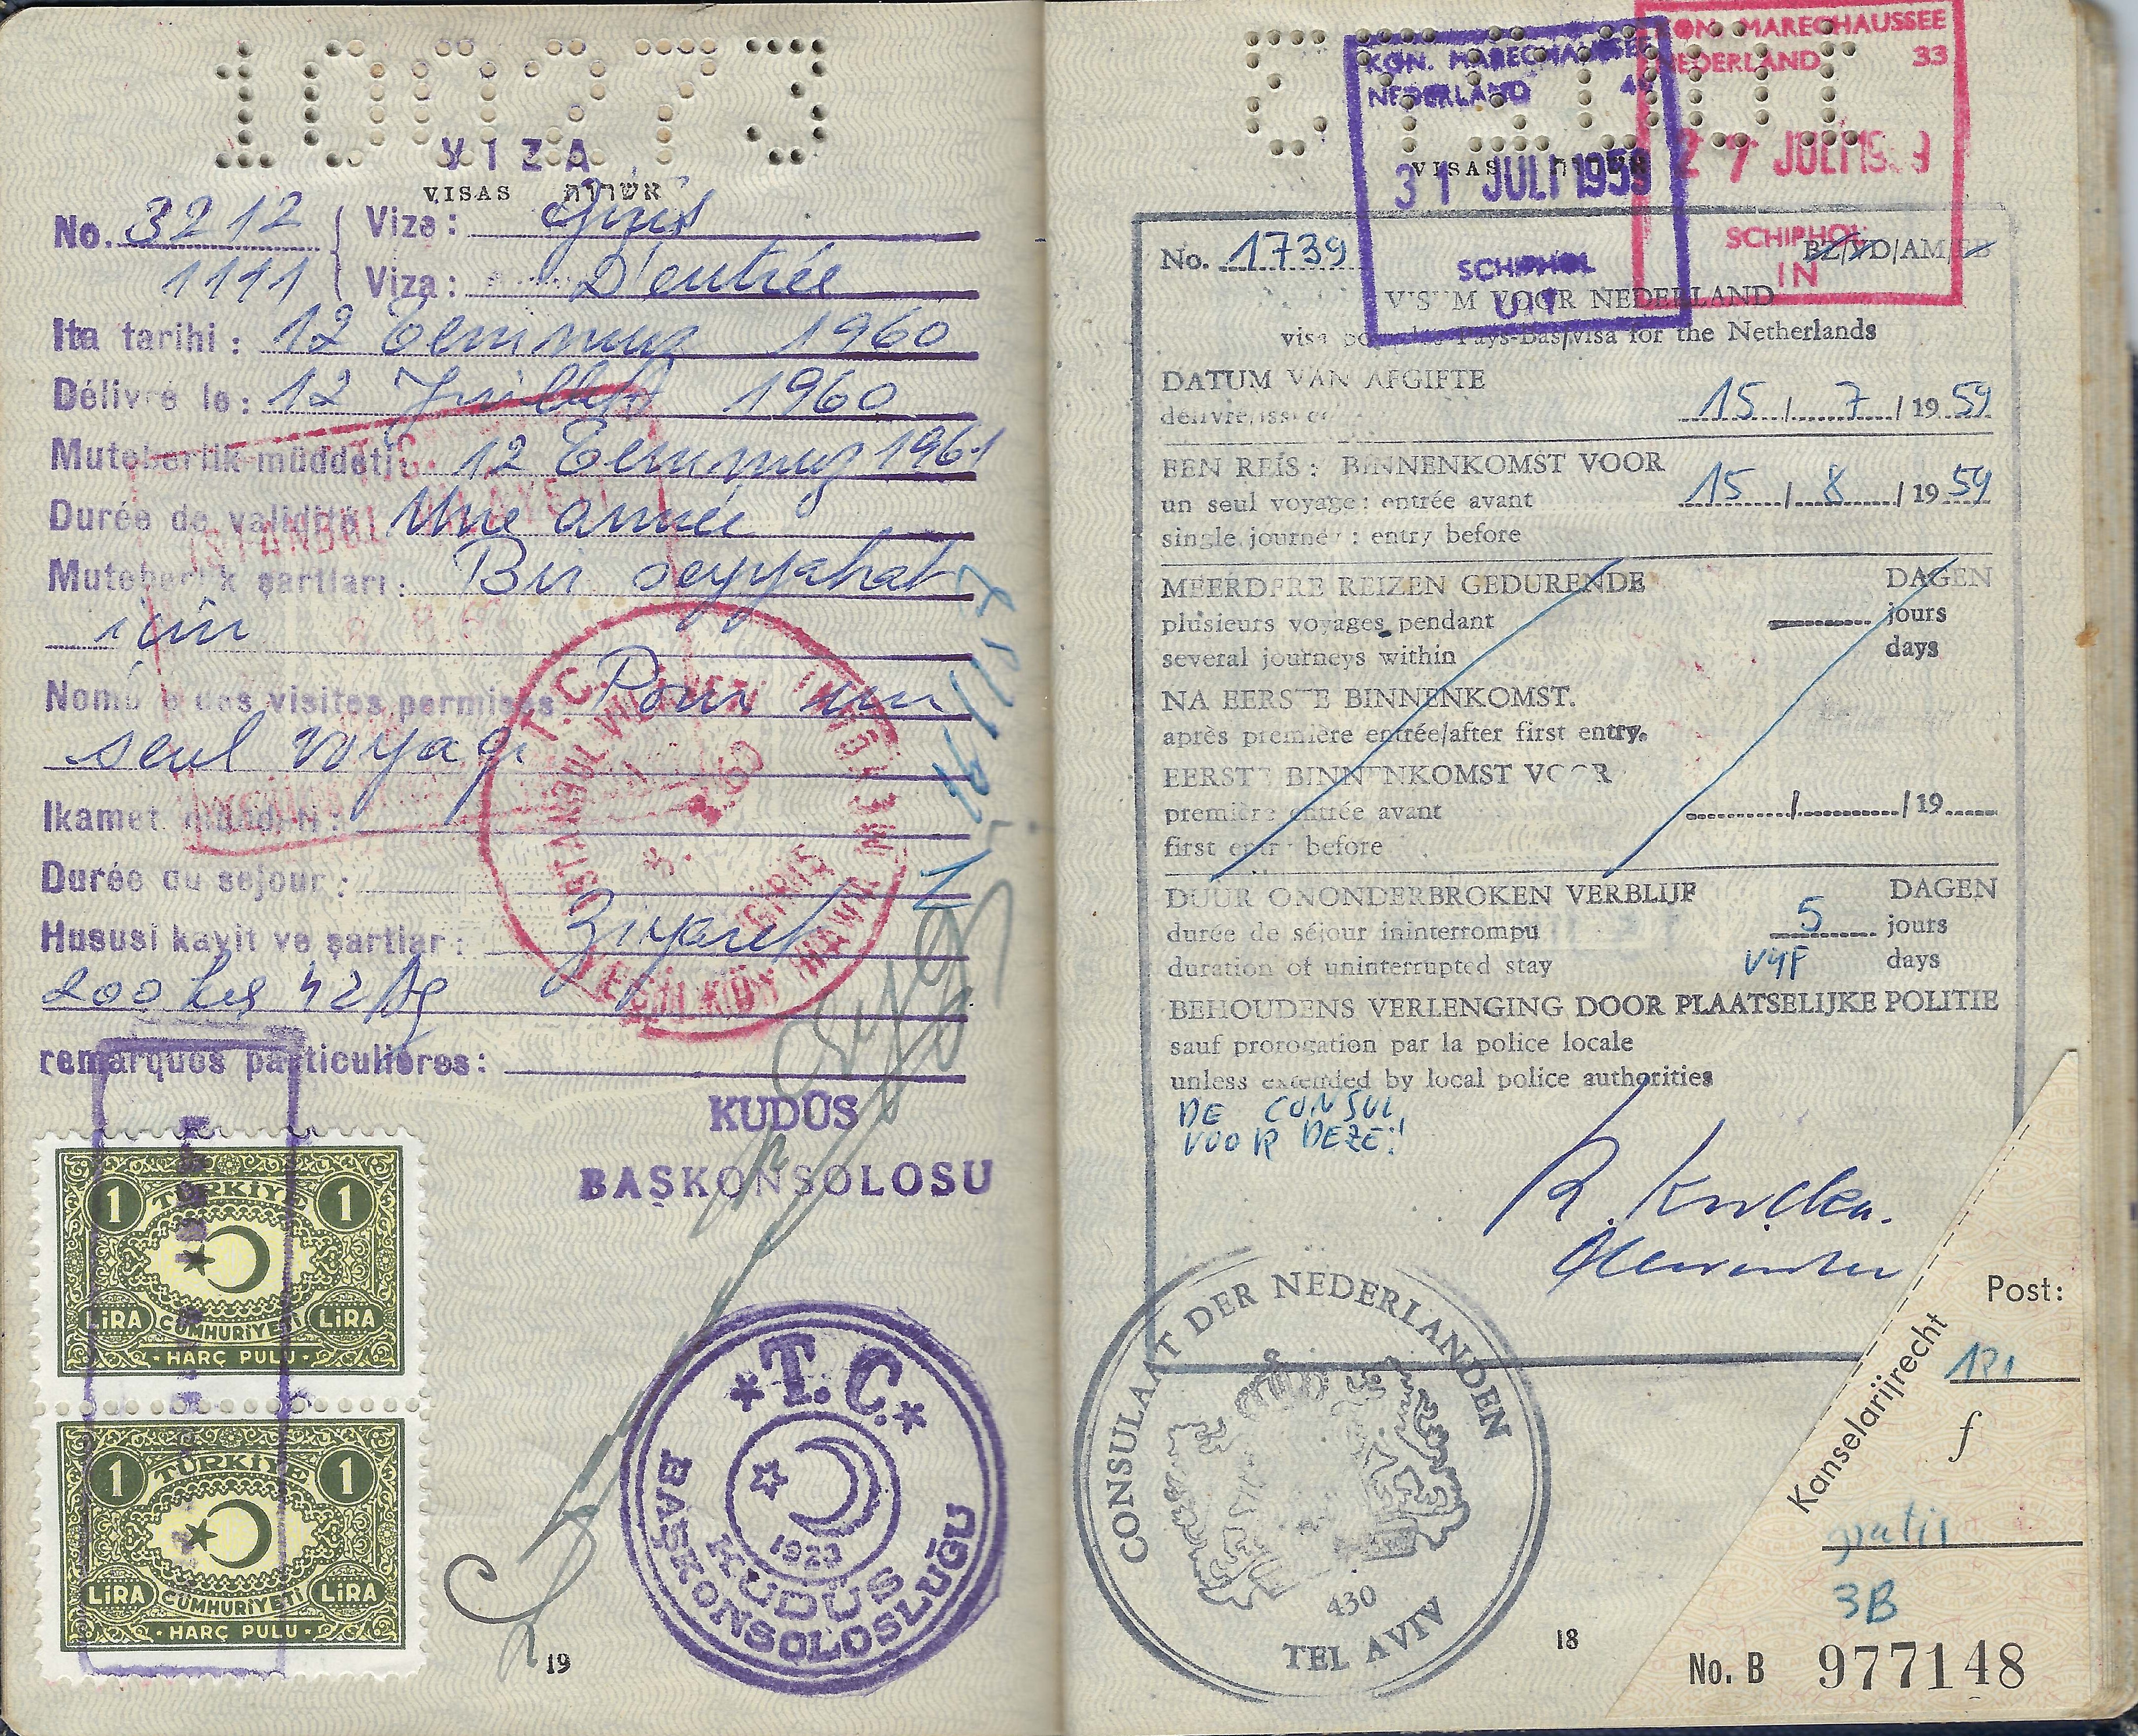 100273
VIZA
VISAS אשרות
No. 3212 Viza: Giriş
1111 Viza: D'entrée
Ita tarihi: 12 Temmuz 1960
Délivré le: 12 Juillet 1960
Muteberlik müddeti: 12 Temmuz 1961
Durée de validité: Une année
Muteberlik şartları: Bir seyyahat
için
Nombre des visites permises: Pour un
seul voyage
Ikamet müddeti:
Durée du sejour:
Hususi kayit ve şartlar: Ziyaret
remarques particulières:
T.C.
ISTANBUL VILAYETI
T.C.
ISTANBUL VILAYETI
YEŞİLKÖY HAVA
GİRİŞ
KUDÜS
BAŞKONSOLOSU
1 TÜRKİYE 1
LİRA CUMHURİYETİ LİRA
HARÇ PULU
1 TÜRKİYE 1
LİRA CUMHURİYETİ LİRA
HARÇ PULU
T.C.
1923
KUDÜS
BAŞKONSOLOSLUĞU
19
KON. MARECHAUSSEE
NEDERLAND
31 JULI 1959
SCHIPHOL
UIT
KON. MARECHAUSSEE
NEDERLAND 33
27 JULI 1959
SCHIPHOL
IN
VISAS אשרות
No. 1739 BZ/VD/AM/
VISUM VOOR NEDERLAND
visa pour les Pays-Bas/visa for the Netherlands
DATUM VAN AFGIFTE
délivré/issued 15/7/1959
EEN REIS: BINNENKOMST VOOR
un seul voyage: entrée avant 15/8/1959
single journey: entry before
MEERDERE REIZEN GEDURENDE DAGEN
plusieurs voyages pendant jours
several journeys within days
NA EERSTE BINNENKOMST.
après première entrée/after first entry.
EERSTE BINNENKOMST VOOR
première entrée avant / /19
first entry before
DUUR ONONDERBROKEN VERBLIJF DAGEN
durée de séjour ininterrompu 5 jours
duration of uninterrupted stay VYF days
BEHOUDENS VERLENGING DOOR PLAATSELIJKE POLITIE
sauf prorogation par la police locale
unless extended by local police authorities
DE CONSUL,
VOOR DEZE:
CONSULAAT DER NEDERLANDEN
430
TEL AVIV
18
Post:
Kanselarijrecht
f
gratis
3B
No. B 977148